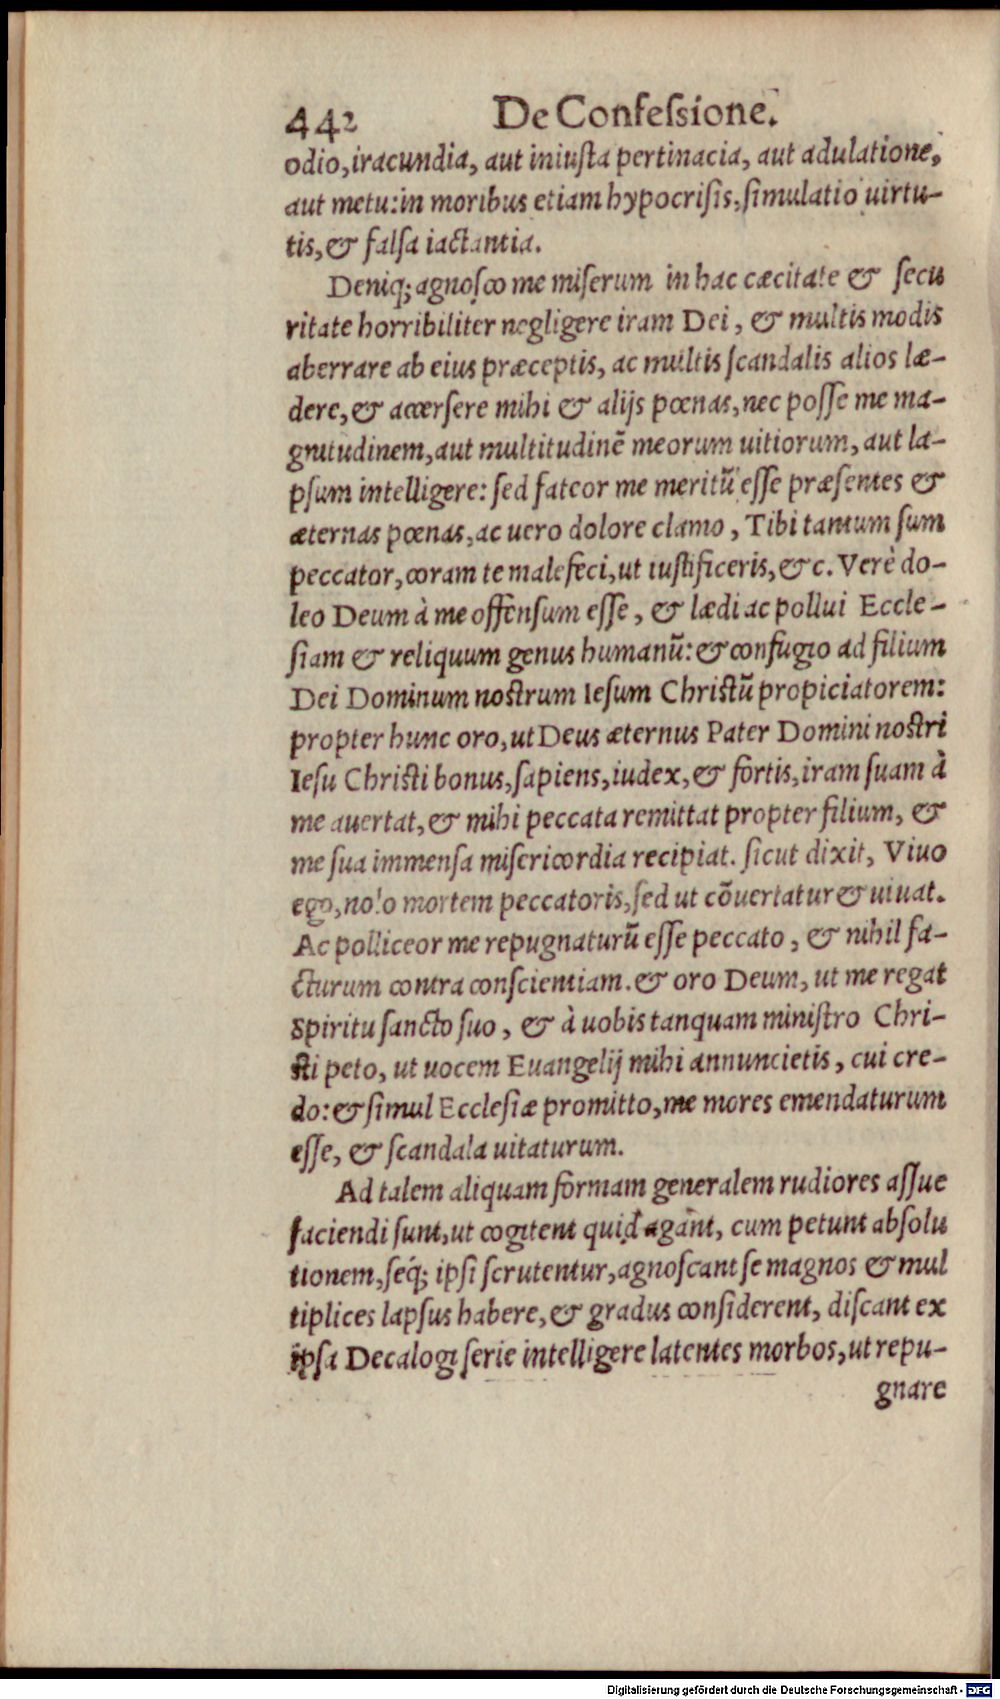 442 De Confessione.
odio, iracundia, aut iniusta pertinacia, aut adulatione,
aut metu: in moribus etiam hypocrisis, simulatio uirtu-
tis, & falsa iactantia.
Deniq; agnosco me miserum in hac cæcitate & secu
ritate horribiliter negligere iram Dei, & multis modis
aberrare ab eius præceptis, ac multis scandalis alios læ-
dere, & accersere mihi & alijs pœnas, nec posse me ma-
gnitudinem, aut multitudinẽ meorum uitiorum, aut la-
psum intelligere: sed fateor me meritũ esse præsentes &
æternas pœnas, ac uero dolore clamo, Tibi tantum sum
peccator, coram te malefeci, ut iustificeris, &c. Verè do-
leo Deum à me offensum esse, & lædi ac pollui Eccle-
siam & reliquum genus humanũ: & confugio ad filium
Dei Dominum nostrum Iesum Christũ propiciatorem:
propter hunc oro, ut Deus æternus Pater Domini nostri
Iesu Christi bonus, sapiens, iudex, & fortis, iram suam à
me auertat, & mihi peccata remittat propter filium, &
me sua immensa misericordia recipiat. sicut dixit, Viuo
ego, nolo mortem peccatoris, sed ut cõuertatur & uiuat.
Ac polliceor me repugnaturũ esse peccato, & nihil fa-
cturum contra conscientiam. & oro Deum, ut me regat
Spiritu sancto suo, & à uobis tanquam ministro Chri-
sti peto, ut uocem Euangelij mihi annuncietis, cui cre-
do: & simul Ecclesiæ promitto, me mores emendaturum
esse, & scandala uitaturum.
Ad talem aliquam formam generalem rudiores assue
faciendi sunt, ut cogitent quid agant, cum petunt absolu
tionem, seq́; ipsi scrutentur, agnoscant se magnos & mul
tiplices lapsus habere, & gradus considerent, discant ex
ipsa Decalogi serie intelligere latentes morbos, ut repu-
gnare
Digitalisierung gefördert durch die Deutsche Forschungsgemeinschaft - DFG